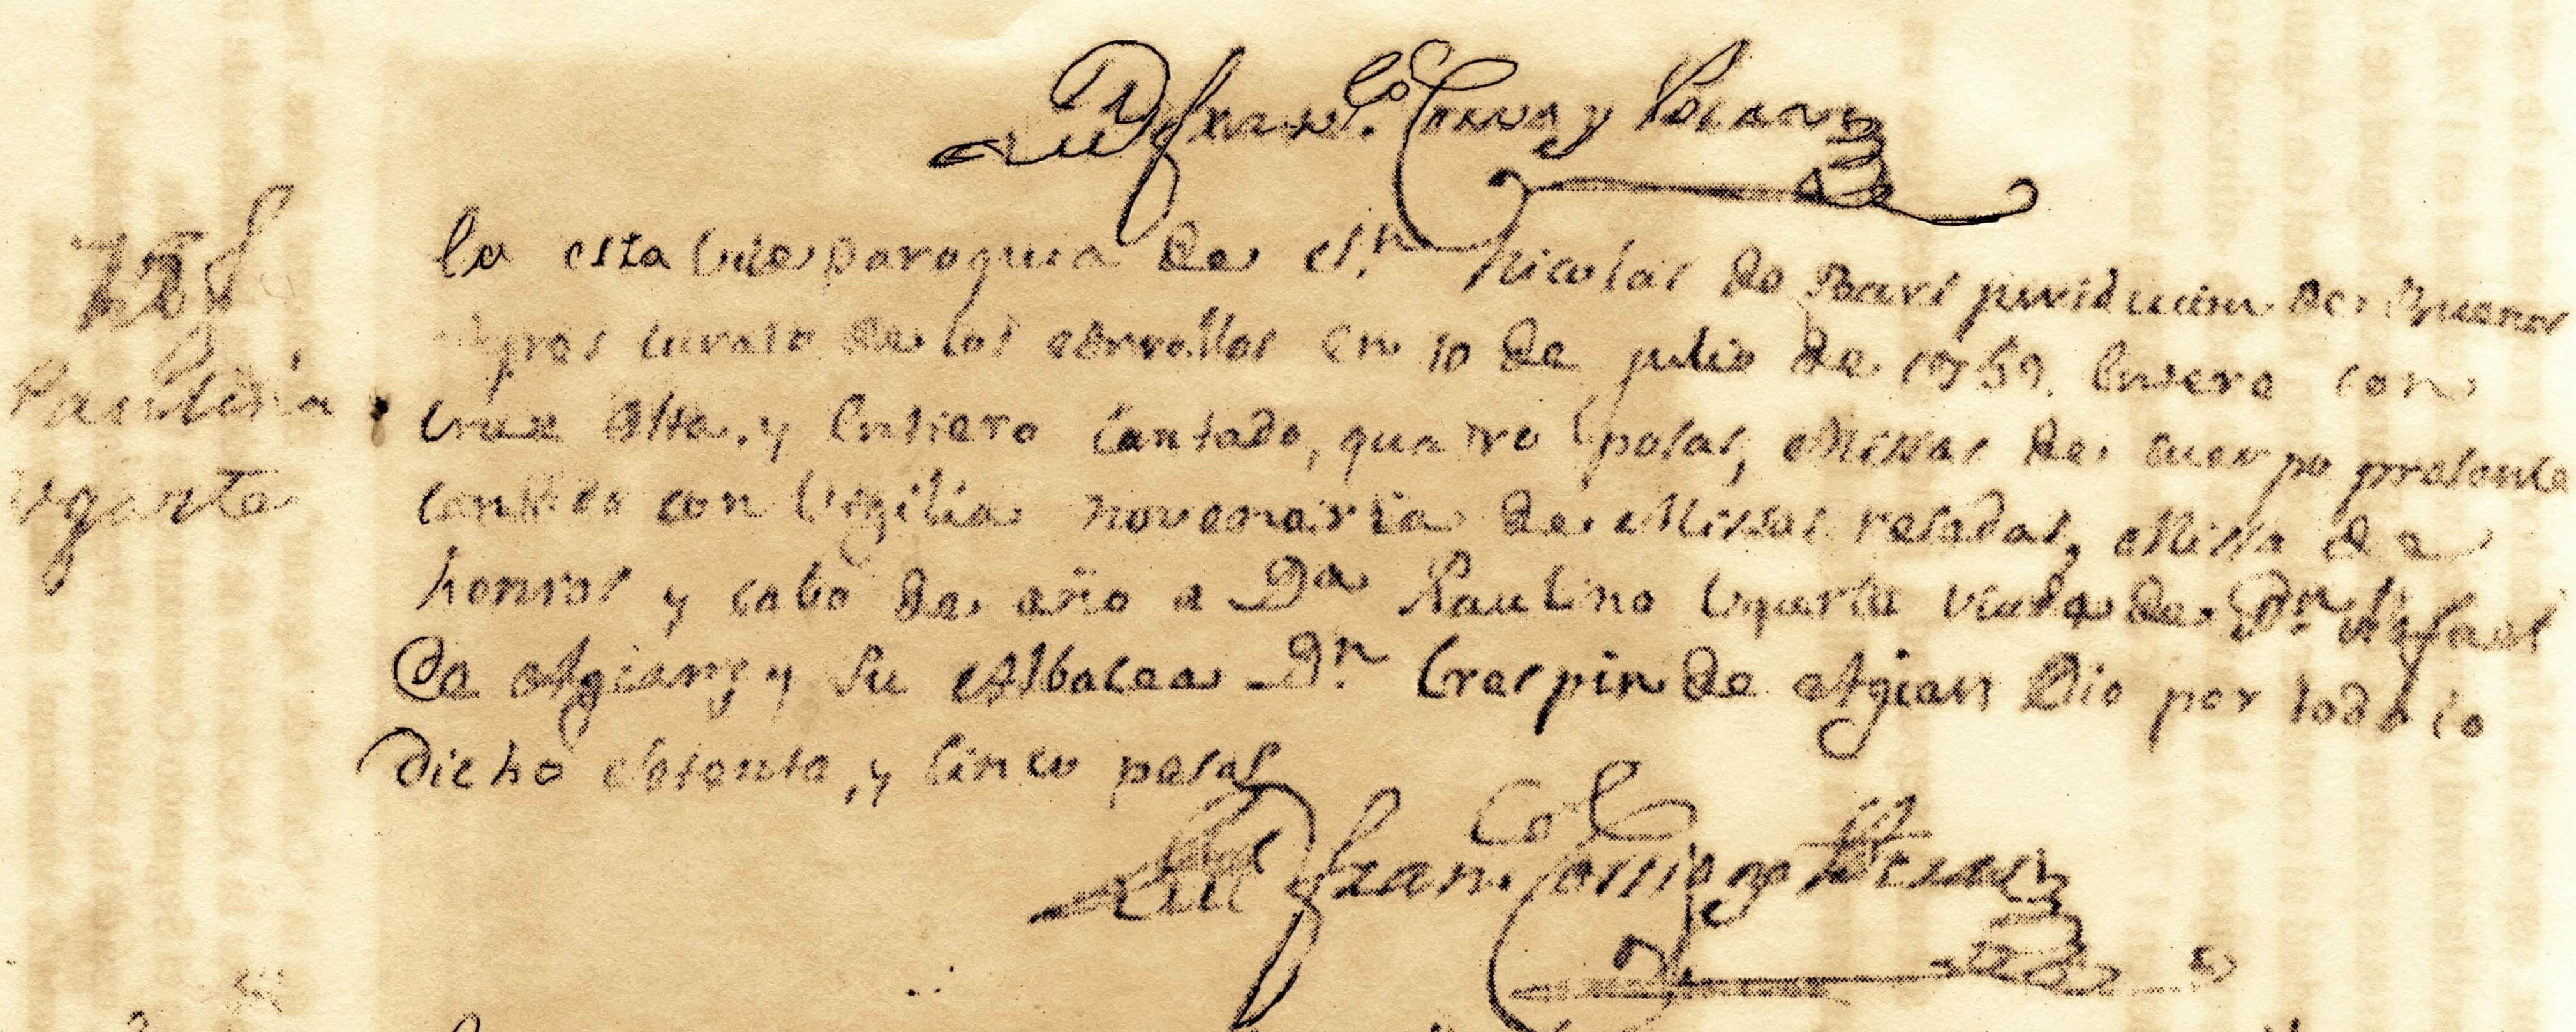 Fran.co Cossio y Theran
En esta Vice Paroquia de Sn. Nicolas de Bari juridicion de Buenos
Ayres curato de los arroyos en 10 de julio de 1759. Entero con
Paulina
Cruz Alta. y Entiero Cantado, quatro posas, Missas de cuerpo presente
Ugarte
Cantada con Vigilia novenaria de Missas resadas, Missa de
honras y cabo de año a Da Paulina Ugarte viuda de Dn. Rafael
de Aguiar, y su Albacea Dn. Crespin de Aguiar Dio por todo lo
Dicho Setenta, y Cinco pesos
Fran.co Cossio y Theran